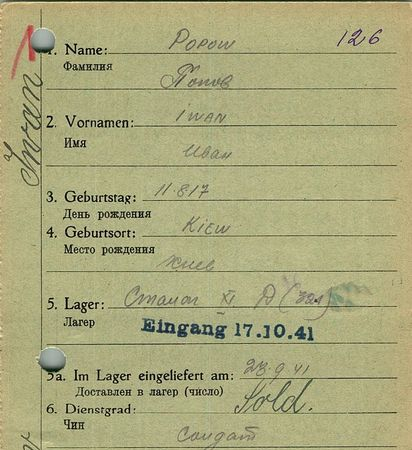 1
126
1. Name: Popow
Фамилия
Попов
2. Vornamen: iwan
Имя
Иван
3. Geburtstag: 11.8.17
День рождения
4. Geburtsort: Kiew
Место рождения
Киев
5. Lager: Сталаг XI D (321)
Лагер
Eingang 17.10.41
5a. Im Lager eingeliefert am: 28.9.41
Доставлен в лагер (число)
6. Dienstgrad: Sold.
Чин
Солдат
Iwan